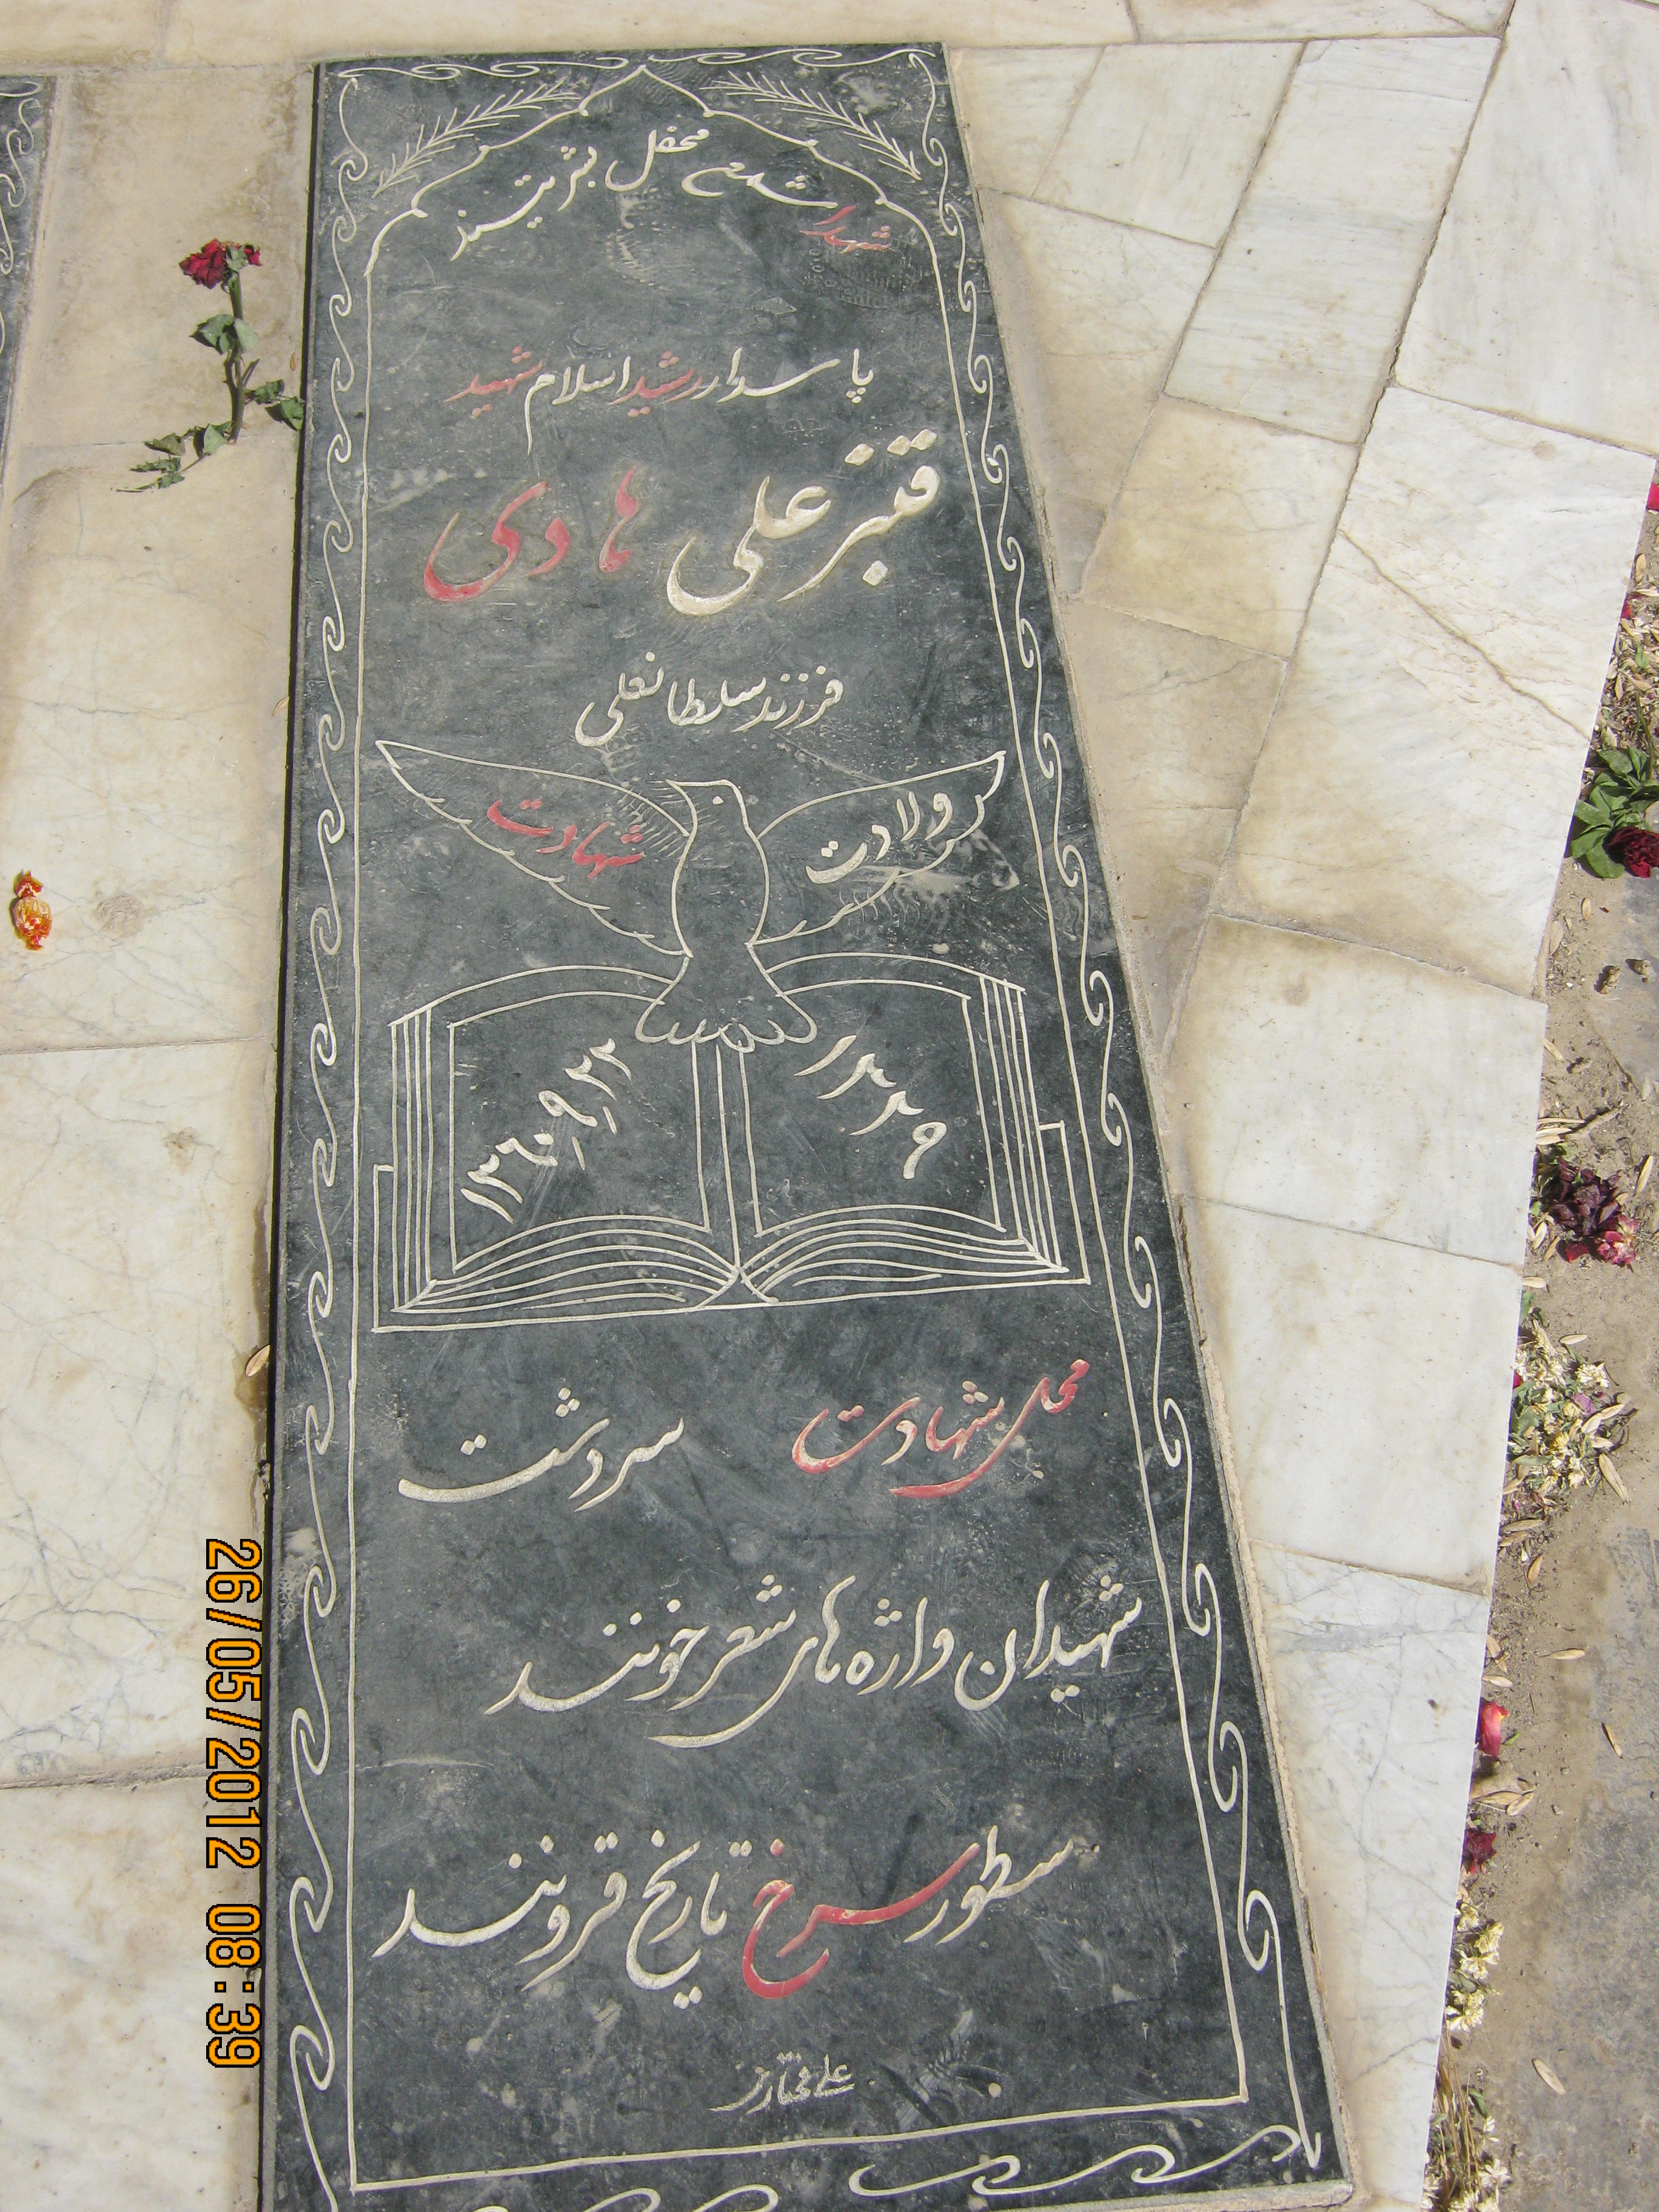 شهدا شمع محفل بشریتند
پاسدار رشید اسلام شهید
قنبر علی هادی
فرزند سلطانعلی
ولادت
شهادت
۱۳۶۰.۹.۲۲
محل شهادت سردشت
شهیدان واژه های شعر خونند
سطور سرخ تاریخ قرونند
26/05/2012 08:39